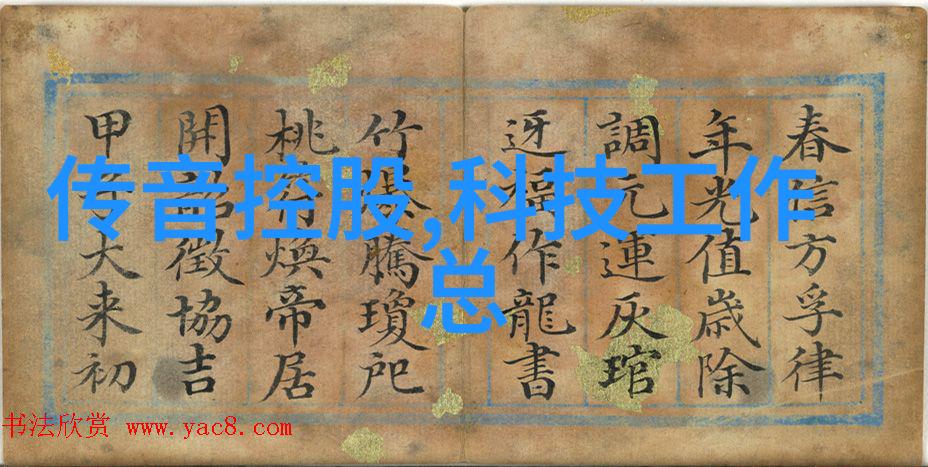 春信方孚律
年光值歲除
調元連灰琯
迓福作龍書
竹爆騰瓊戺
桃符煥帝居
開韶徵協吉
甲大来初
传音控股,科技工作
总
书法欣赏 www.yac8.com